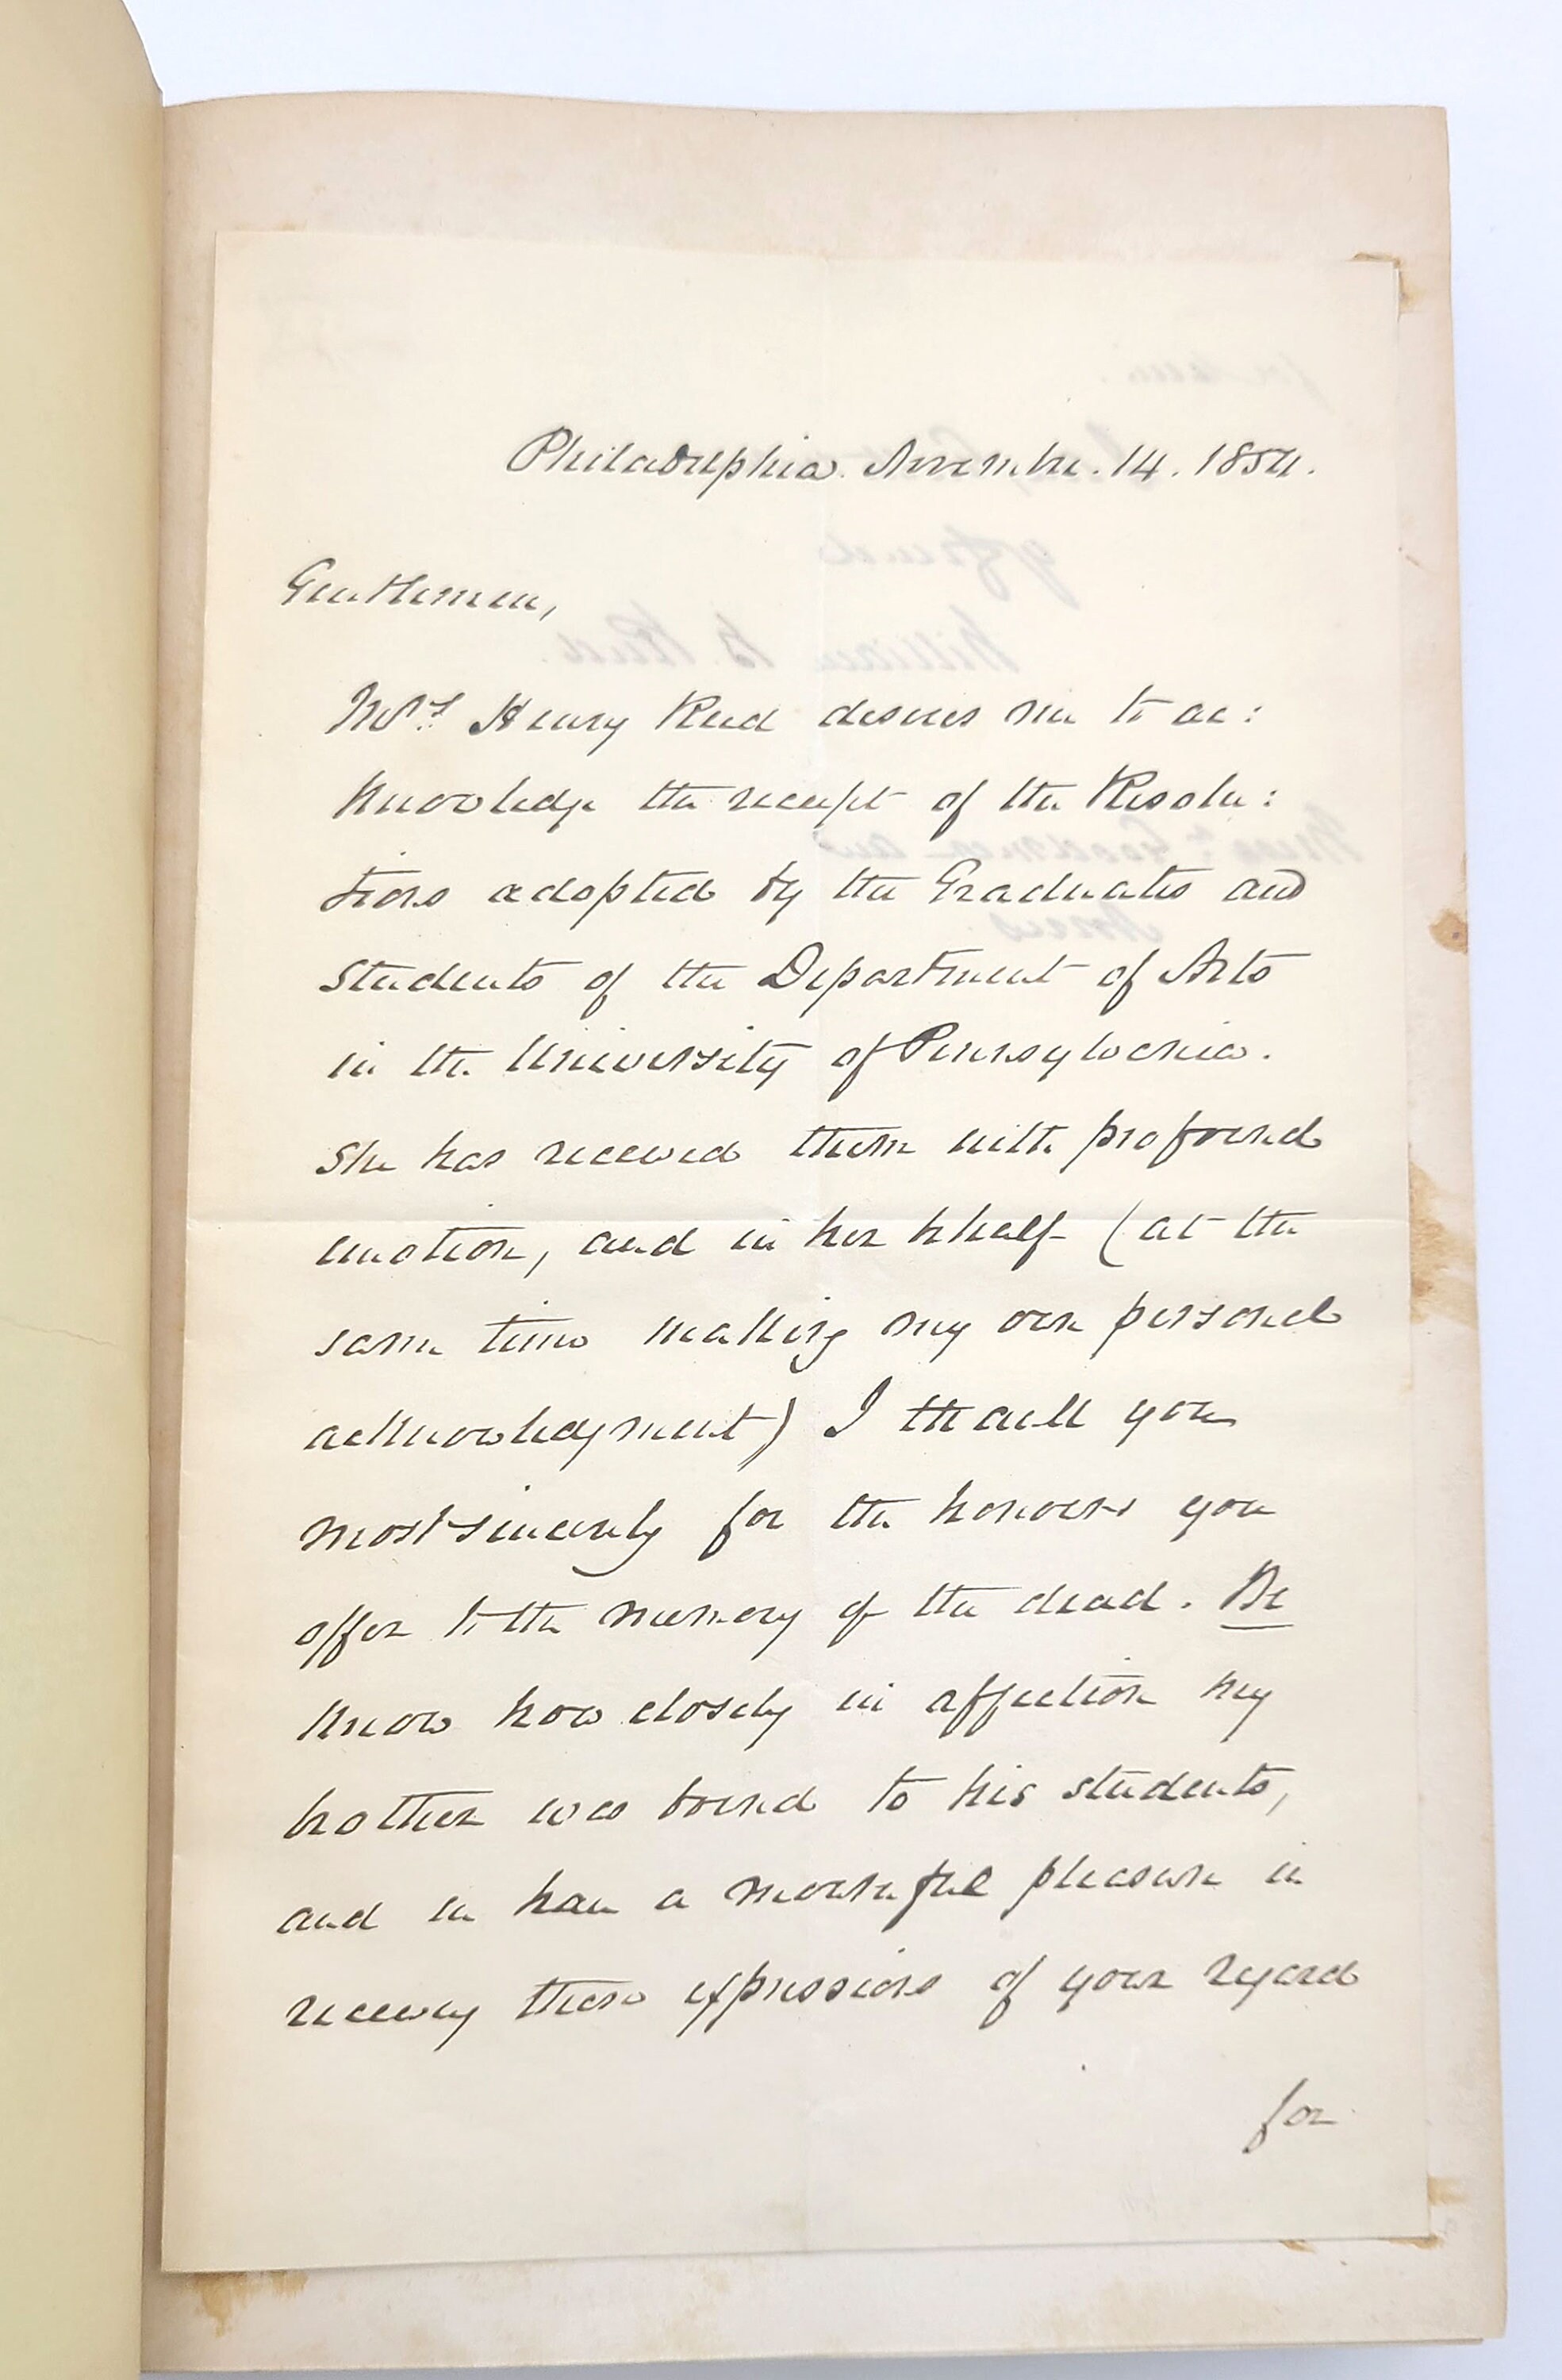 Philadelphia. November. 14. 1854.
Gentlemen,
Mrs. Henry Reed desires me to ac:
knowledge the receipt of the Resolu:
tions adopted by the Graduates and
Students of the Department of Arts
in the University of Pennsylvania.
She has received them with profound
emotion, and in her behalf (at the
same time making my own personal
acknowledgment) I thank you
most sincerely for the honours you
offer to the memory of the dead. We
know how closely in affection my
brother was bound to his students,
and we have a mournful pleasure in
receiving these expressions of your regard
for
William B. Reed.